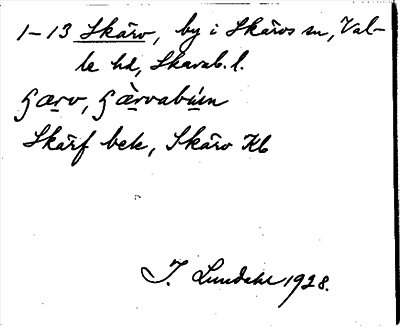 1-13 Skärv, by i Skärvs sn, Val-
le hd, Skarab. l.
ʃærv, ʃæ̀rvabúɪn
Skärf bek, Skärv Kb
J. Lundahl 1928.